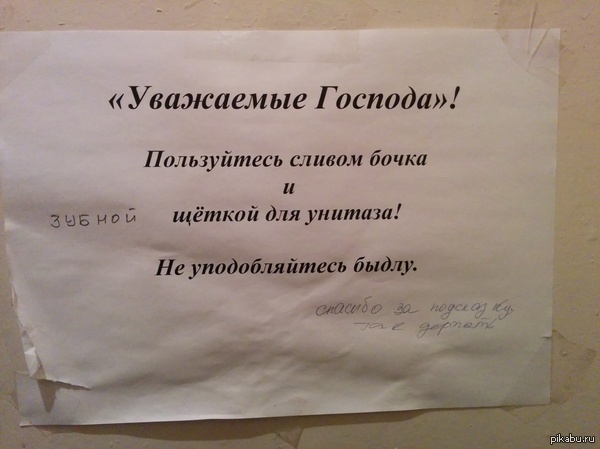 «Уважаемые Господа»!
Пользуйтесь сливом бочка
и
ЗУБНОЙ щёткой для унитаза!
Не уподобляйтесь быдлу.
спасибо за подсказку,
pikabu.ru